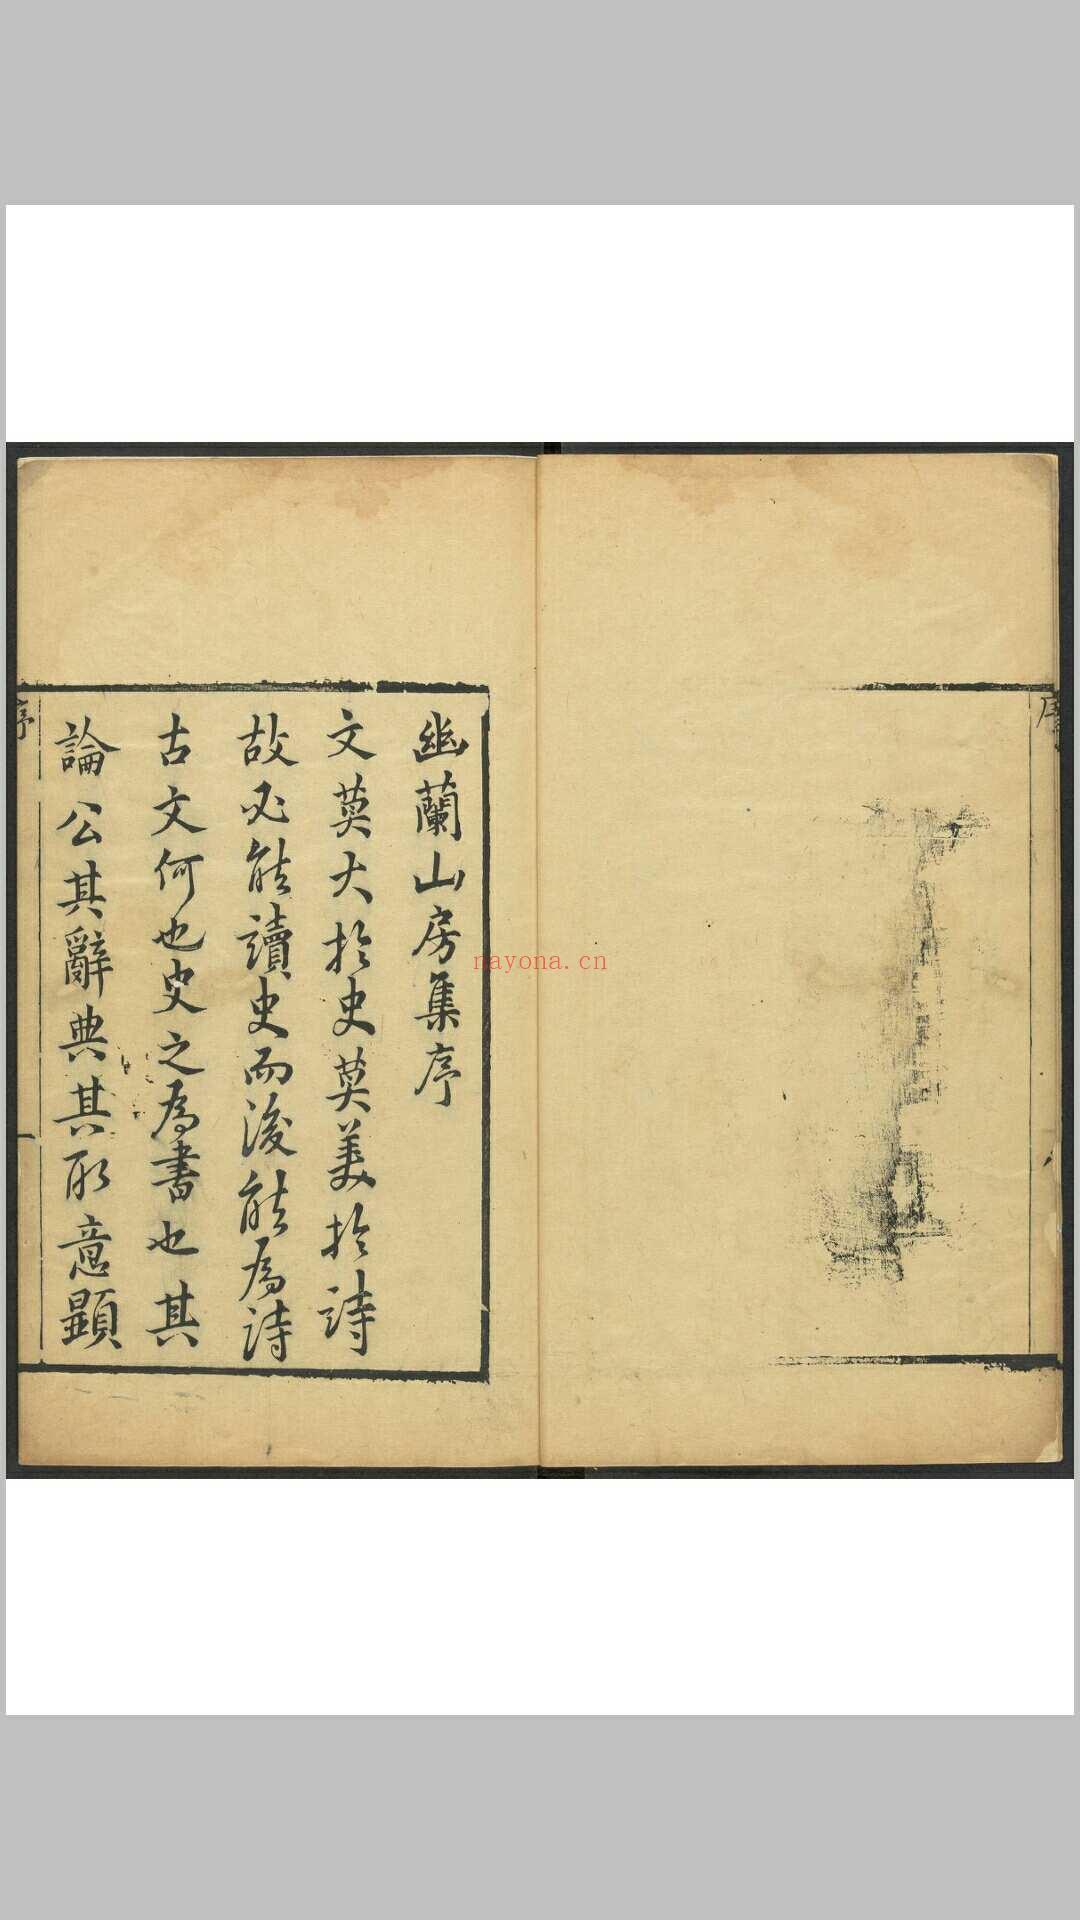 序
幽蘭山房集序
文莫大於史莫美於詩
故必能讀史而後能為詩
古文何也史之為書也其
論公其辭典其取意顯
序
nayona.cn